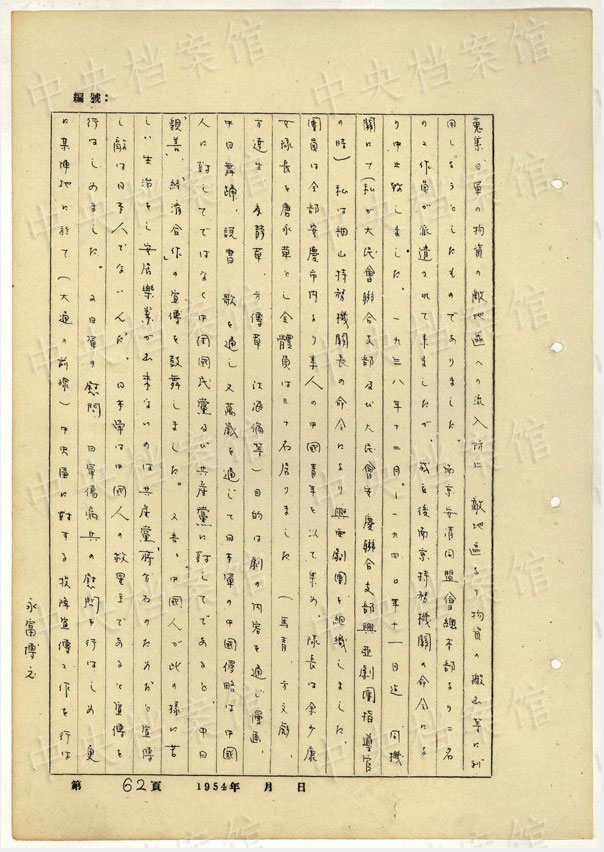 編號：
蒐集、日軍の物資の敵地區への流入防止 敵地區より物資の搬出等に利
用しようとしたものでありました。南京安清同盟會總本部より二名
の工作員が派遣されて来ましたが、成立後南京特務機關の命令によ
り中止致しました。一九三八年十二月～一九四〇年十一月迄、同機
關にて（私が大民會聯合支部及び大民會安慶聯合支部興亞劇團指導官
の時）私は細山特務機關長の命令により興亞劇團を組織しました、
團員は全部安慶市内より素人の中國青年を以て集め、隊長は余少康
女隊長を唐永華とし全體員は三十名居りました（馬青、方文彪、
方達生 李靜華、方傳華 江涵倫等）目的は劇の内容を通じ漫画、
中日舞踊、説書 歌を通し又萬歲を通じて日本軍の中國侵略は中國
人に対してではなく中国國民黨及び共産黨に対してであると、中日
親善、經濟合作の宣傳を鼓舞しました。又吾々中國人が此の様に苦
しい生活をし安居樂業が出来ないのは共産黨が有るのためだと宣傳
し敵は日本人でないんだ。日本軍は中國人の救星主であると宣傳を
行はしめました。又日軍の慰問 日軍傷病兵の慰問を行はしめ 更
に某陣地に於て（大通の前線）中央軍に対する投降宣傳工作を行は
永富博之
第 62頁 1954年 月 日
中央档案馆